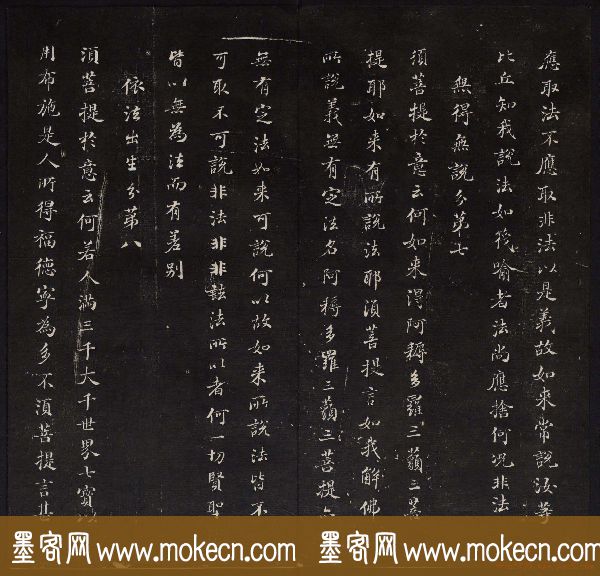 應取法不應取非法以是義故如來常說汝等
比丘知我說法如筏喻者法尚應捨何況非法
無得無說分第七
須菩提於意云何如来得阿耨多羅三藐三菩
提耶如来有所說法耶須菩提言如我解佛
所說義無有定法名阿耨多羅三藐三菩提
無有定法如来可說何以故如来所說法皆不
可取不可說非法非非法所以者何一切賢聖
皆以無為法而有差別
依法出生分第八
須菩提於意云何若人滿三千大千世界七寶以
用布施是人所得福德寧為多不須菩提言甚
墨客网 www.mokecn.com 墨客网 www.mokecn.com